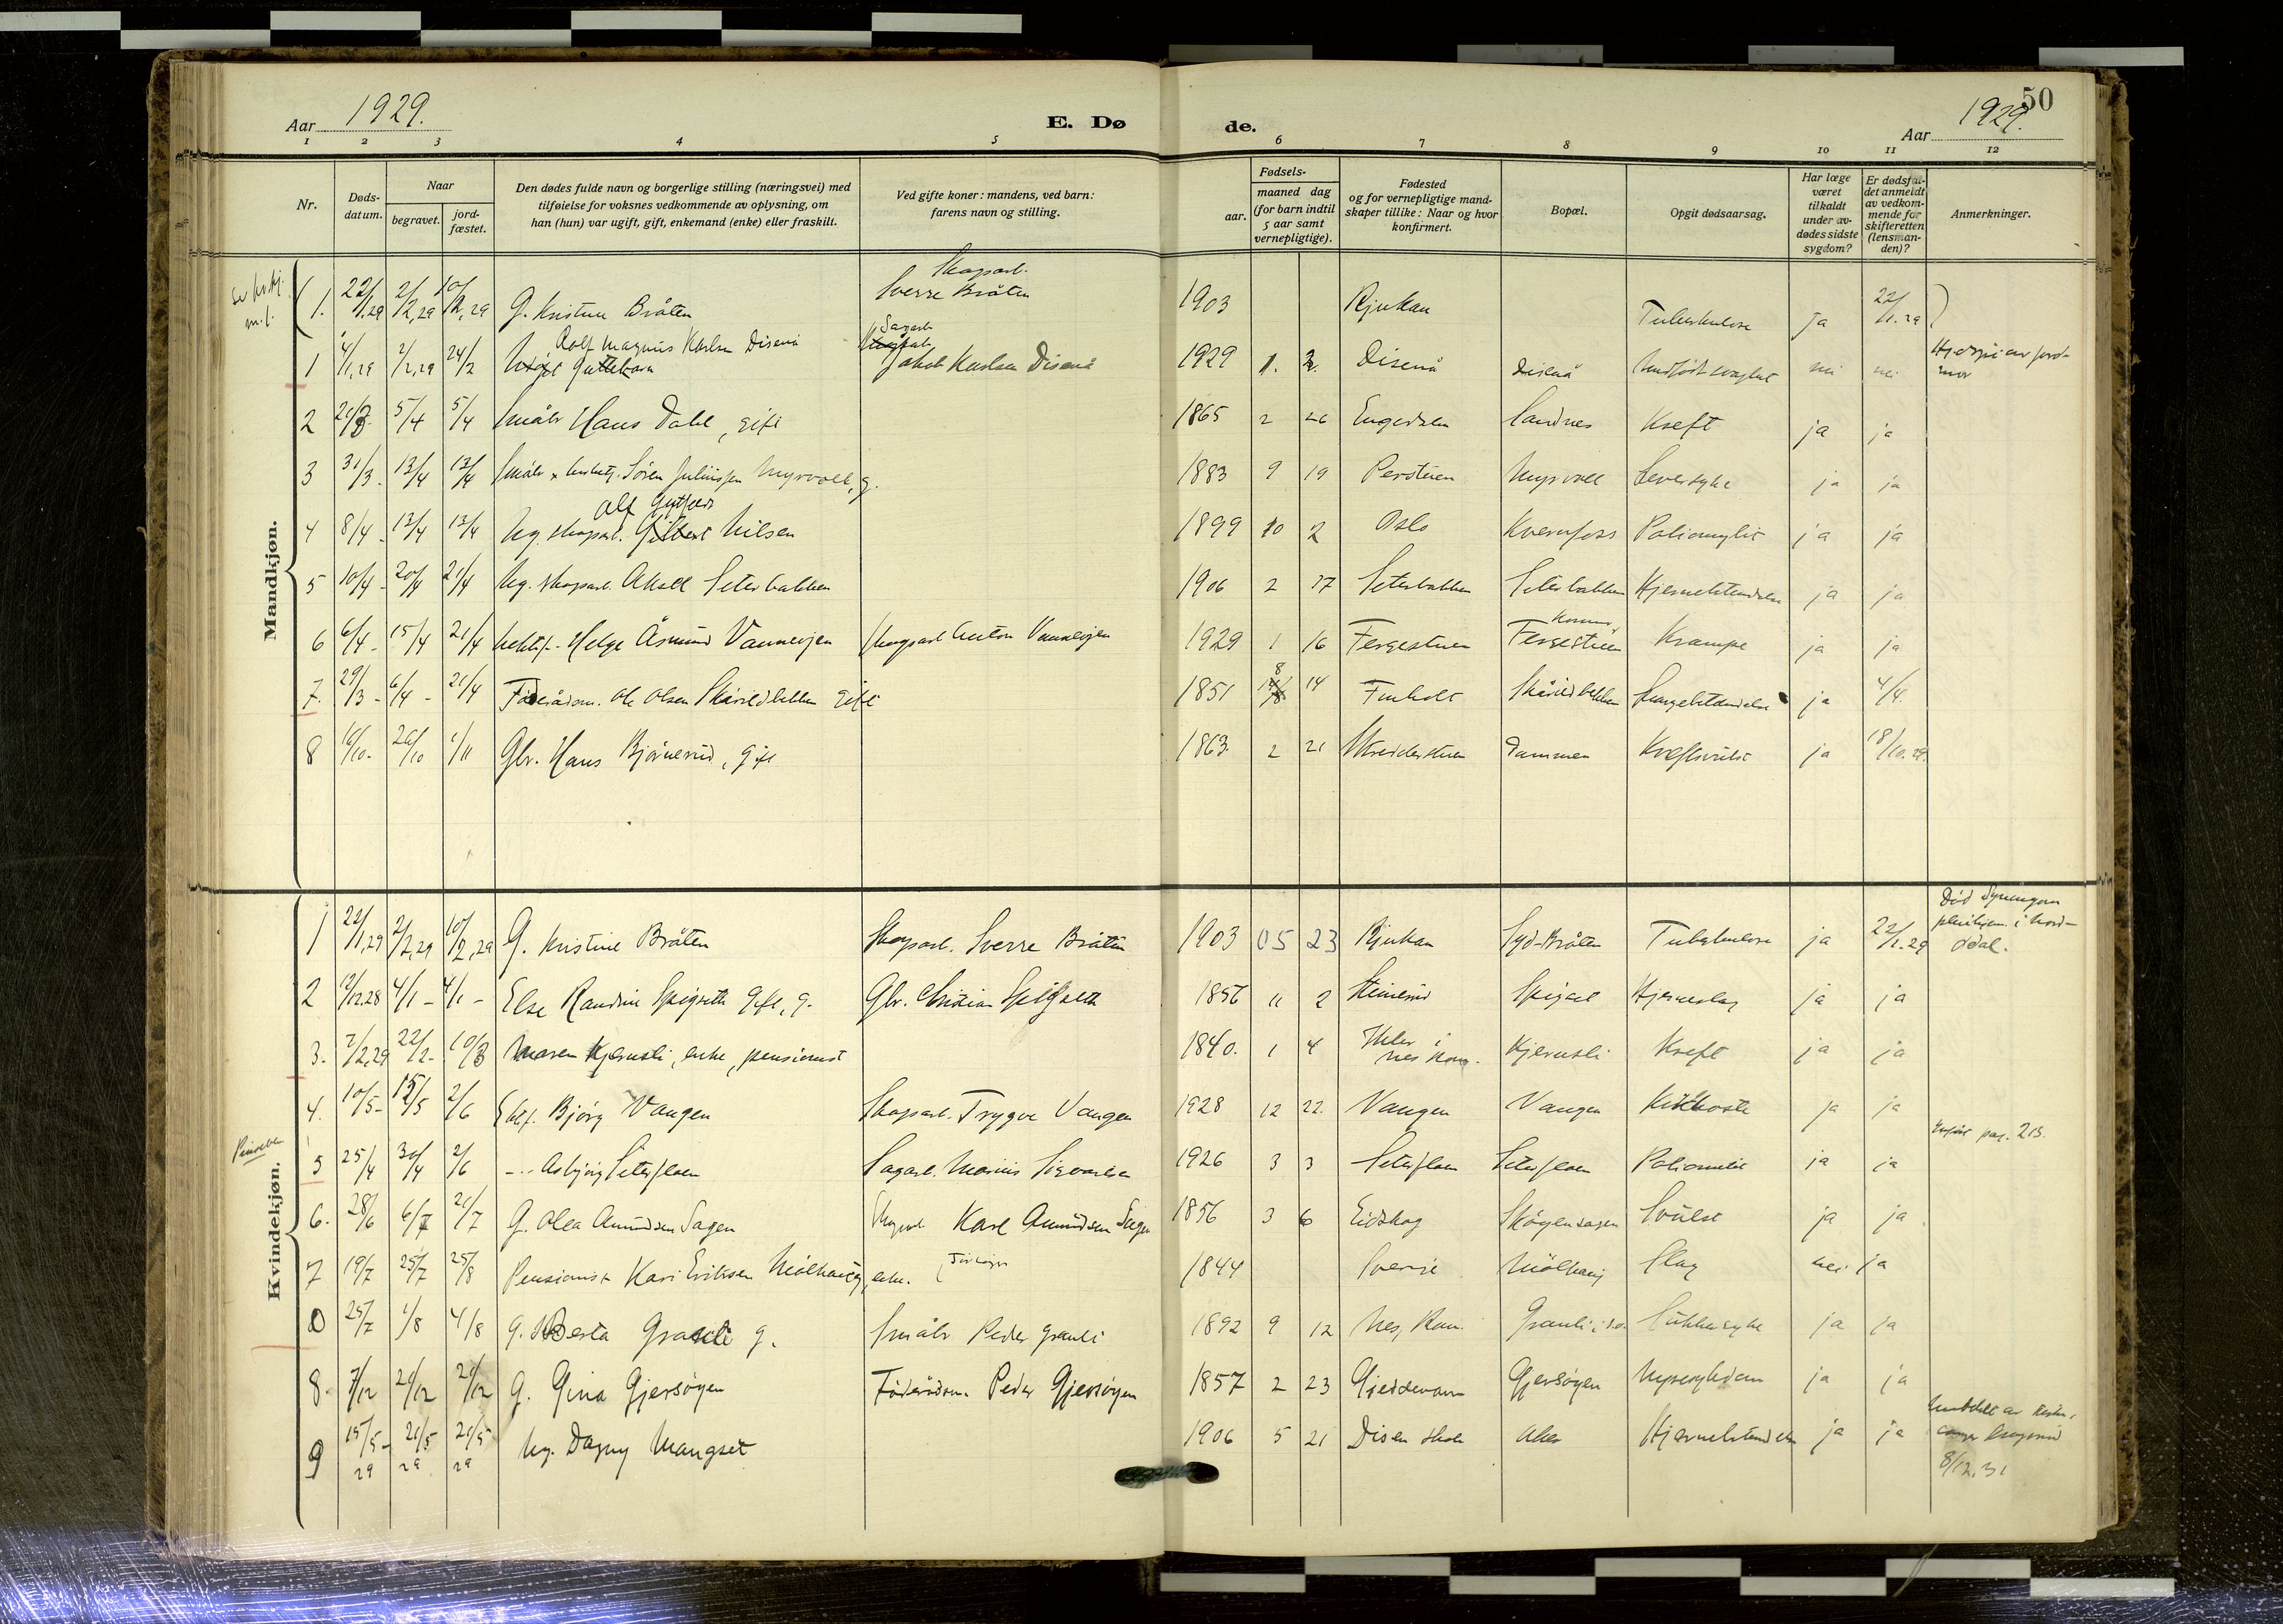 Aar 1929. E. Døde. Aar 1929. 50
1 2 3 4 5 6 7 8 9 10 11 12
Nr. Døds-datum. Naar begravet. jord-fæstet. Den dødes fulde navn og borgerlige stilling (næringsvei) med tilføielse for voksnes vedkommende av oplysning, om han (hun) var ugift, gift, enkemand (enke) eller fraskilt. Ved gifte koner: mandens, ved barn: farens navn og stilling. Fødsels- aar. maaned dag (for barn indtil 5 aar samt vernepligtige). Fødested og for vernepligtige mand-skaper tillike: Naar og hvor konfirmert. Bopæl. Opgit dødsaarsag. Har læge været tilkaldt under av-dødes sidste sygdom? Er dødsfal-det anmeldt av vedkom-mende for skifteretten (lensman-den)? Anmerkninger.
Mandkjøn.
(1. 22/1.29 2/2,29 10/2,29 G. Kristine Bråten Skogsarb. Sverre Bråten 1903 Rjukan Tuberkulose ja 22/1.29 )
1 4/1,29 2/2,29 24/2 Rolf Magnus Karlsen Disenå Guttebarn Sagarb. Jakob Karlsen Disenå 1929 1. 2. Disenå Disenå nei nei
2 5/4 5/4 Småbr. Hans Dahl, gift 1865 2 26 Engedalen Sandnes Kreft ja ja
3 31/3. 13/4 13/4 Småbr. Søren Juliussen Myrvoll, g. 1883 9 19 Perstuen Myrvoll Leversyke ja ja
4 8/4 - 13/4 13/4 Ug. skogsarb. Gilbert Nilsen 1899 10 2 Oslo Kvernfoss ja ja
5 10/4 - 20/4 21/4 Ug. skogsarb. Aksel Seterbakken 1906 2 17 Seterbakken Seterbakken Hjernebetendelse ja ja
6 6/4 - 15/4 21/4 Helge Åsmund Vannevjen Skogsarb Anton Vannevjen 1929 1 16 Fergestuen Fergestuen Krampe ja ja
7. 29/3 - 6/4 - 21/4 Ole Olsen Skårildbekken gift 1851 8 14 Finholt Skårildbekken Lungebetændelse ja 4/4.
8 16/10 - 26/10 1/11 Gbr. Hans Bjørnerud, gift 1863 2 21 Dammen Kreftsvulst ja 18/10.29.
Kvindekjøn.
1 22/1,29 2/2,29 10/2,29 G. Kristine Bråten Skogsarb. Sverre Bråten 1903 05 23 Rjukan Syd-Bråten Tuberkulose ja 22/1.29 Død i Nord-Odal.
2 4/1 - 4/1 - Else Randine Spigseth gift, g. Gbr. Kristian Spigseth 1856 11 2 Steinerud Hjerneslag ja ja
3. 7/2,29 22/2- 10/3 Maren Kjernsli, enke, pensionist 1840. 1 4 Kjernsli Kreft ja ja
4. 10/5- 15/5 2/6 Ektef. Bjørg Vangen Skogsarb. Trygve Vangen 1928 12 22. Vangen Vangen Kikhoste ja ja
5 25/4 30/4 2/6 -..- Asbjørg Seterfloen Sagarb. Marius Sigvartsen 1926 3 3 Seterfloen Seterfloen ja ja pag. 213.
6. 28/6 6/7 21/7 G. Olea Amundsen Sagen Karl Amundsen Sagen 1856 3 6 Eidskog Skøyensagen Svulst ja ja
7 19/7 25/7 25/8 Pensionist Kari Eriksen Mølhaug, enke. 1844 Sverige Mølhaug Slag nei. ja
25/7 1/8 4/8 G. Berta Granli g. Småbr. Peder Granli 1892 9 12 Nes, Rom. Granli Sukkersyke ja ja
8. 7/12 21/12 21/12 G. Gina Gjersøyen Føderådsm. Peder Gjersøyen 1857 2 23 Gjeddevann Gjersøyen ja ja
9 15/5-29 21/5 29 21/5 29 Ug. Dagny Mangset 1906 5 21 Disen skole Aker Hjernebetendelse ja ja 8/12.31